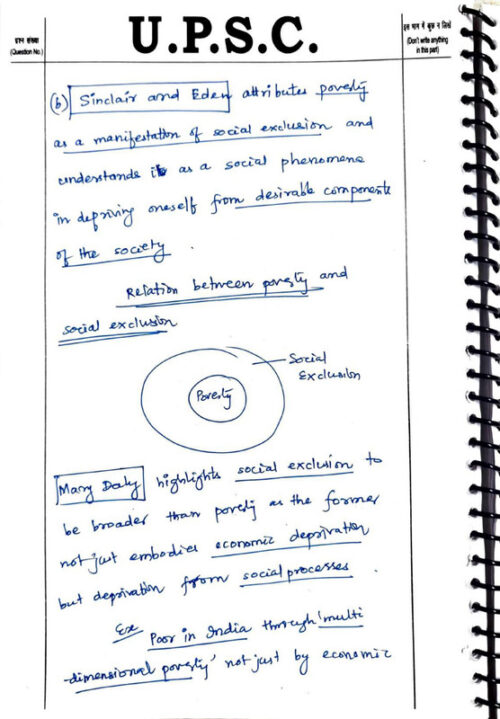 प्रश्न संख्या
(Question No.)
U.P.S.C.
इस भाग में कुछ न लिखें
(Don't write anything
in this part)
(b) Sinclair and Eden attributes poverty
as a manifestation of social exclusion and
understands it as a social phenomena
in depriving oneself from desirable components
of the society.
Relation between poverty and
social exclusion
Social
Exclusion
Poverty
Mary Daly highlights social exclusion to
be broader than poverty as the former
not just embodies economic deprivation
but deprivation from social processes
Ex Poor in India through 'multi
-dimensional poverty' not just by economic